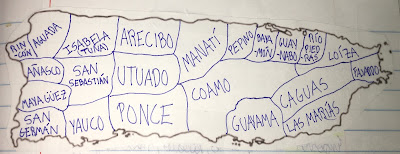 RIN-
CÓN
AGUADA
ISABELA
(TUNA)
ARECIBO
MANATÍ
PEPINO
BAYA-
MÓN
GUAY-
NABO
RÍO
PIED-
RAS
LOÍZA
FAJARDO
AÑASCO
SAN
SEBASTIÁN
UTUADO
COAMO
CAGUAS
MAYAGÜEZ
SAN
GERMÁN
YAUCO
PONCE
GUAYAMA
LAS MARÍAS